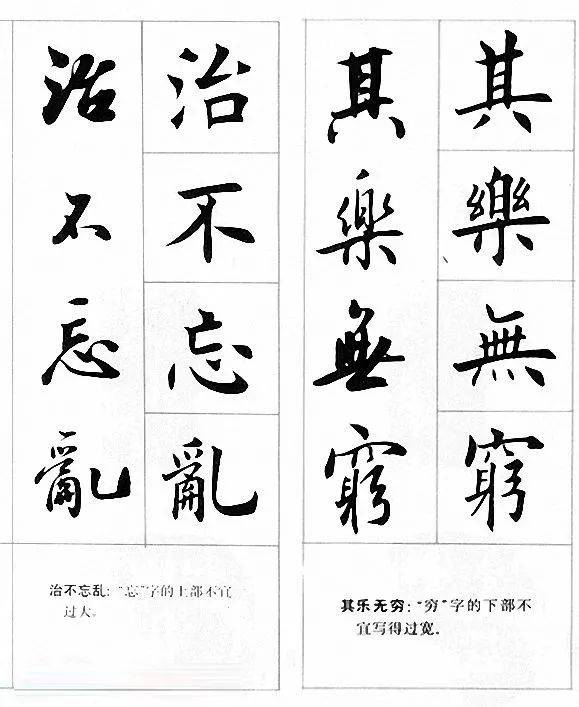 其樂無窮
其樂無窮
其乐无穷：“穷”字的下部不
宜写得过宽。
治不忘亂
治不忘亂
治不忘乱：“忘”字的上部不宜
过大。